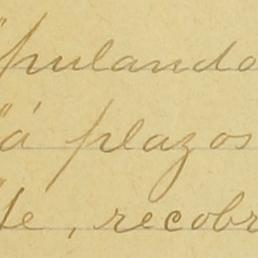 pulando
á plazos
te, recobr